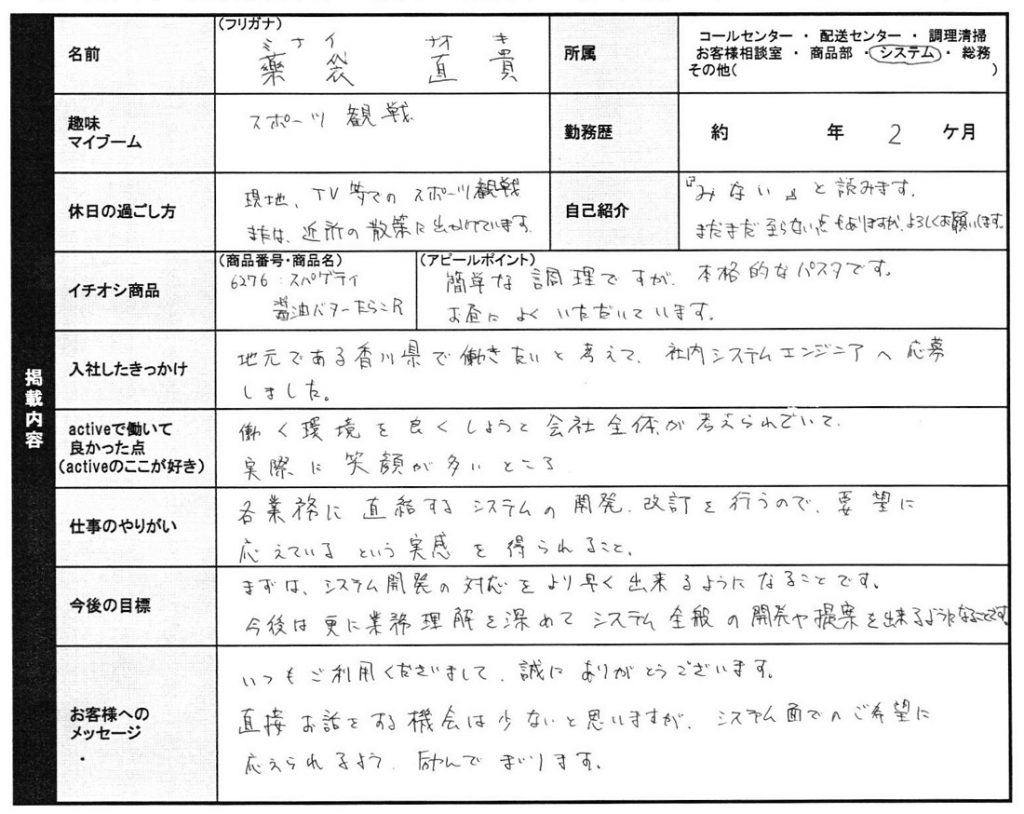 掲載内容
名前
(フリガナ)
ミナイ ナオキ
藥袋 直貴
所属
コールセンター ・ 配送センター ・ 調理清掃
お客様相談室 ・ 商品部 ・ システム ・ 総務
その他( )
趣味
マイブーム
スポーツ観戦
勤務歴
約 年 2 ケ月
休日の過ごし方
現地、TV等でのスポーツ観戦
または、近所の散策に出かけています。
自己紹介
『みない』と読みます。
まだまだ至らない点もありますが、よろしくお願いします。
イチオシ商品
(商品番号・商品名)
6276:スパゲティ
醤油バターたらこR
(アピールポイント)
簡単な調理ですが、本格的なパスタです。
お昼によくいただいています。
入社したきっかけ
地元である香川県で働きたいと考えて、社内システムエンジニアへ応募
しました。
activeで働いて
良かった点
(activeのここが好き)
働く環境を良くしようと会社全体が考えられていて、
実際に笑顔が多いところ
仕事のやりがい
各業務に直結するシステムの開発、改訂を行うので、要望に
応えているという実感を得られること。
今後の目標
まずは、システム開発の対応をより早く出来るようになることです。
今後は更に業務理解を深めてシステム全般の開発や提案を出来るようになることです
お客様への
メッセージ
いつもご利用くださいまして、誠にありがとうございます。
直接お話をする機会は少ないと思いますが、システム面でのご希望に
応えられるよう、励んでまいります。